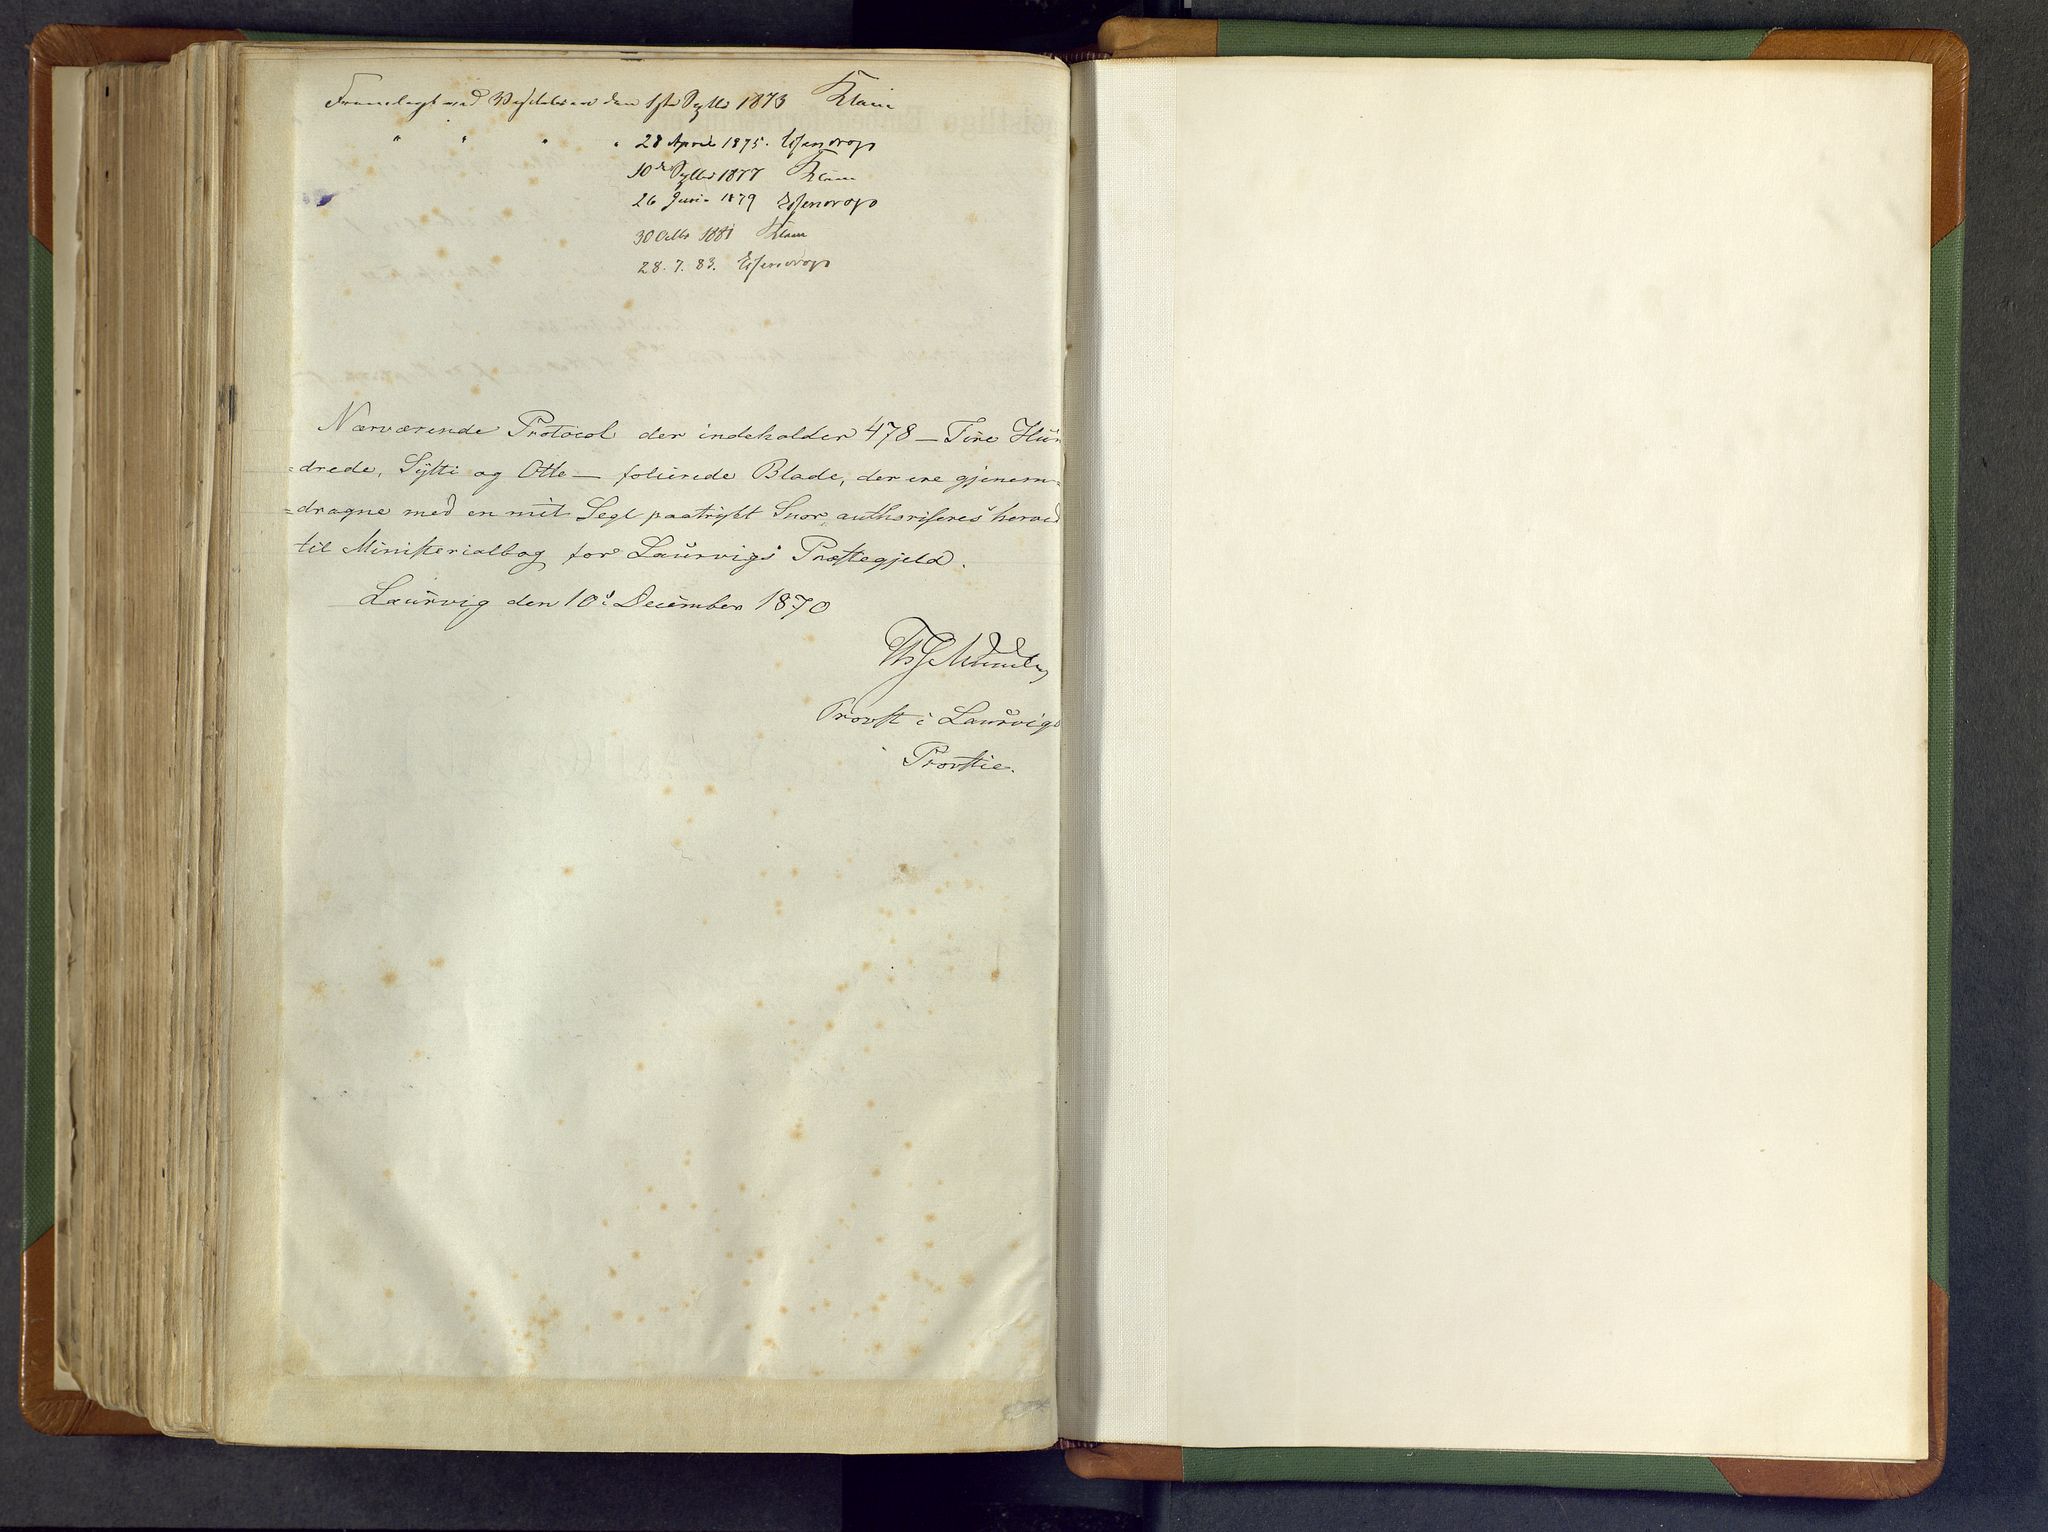 Fremlagt ved Visitatsen den 1ste Septbr 1873
" " " " 28 April 1875. Essendrop
10de Septbr 1877
26 Juni 1879 Essendrop
30 Octbr 1881
28. 7. 83. Essendrop
Nærværende Protocol der indeholder 478 — Fire Hun
=drede, Sÿtti og Otte — folierede Blade, der ere gjenem=
=dragne med en mit Segl paatrÿkt Snor, authoriseres herved
til Ministerialbog for Laurvigs Præstegjeld.
Laurvig den 10de December 1870
Provst i Laurvigs
Provstie.